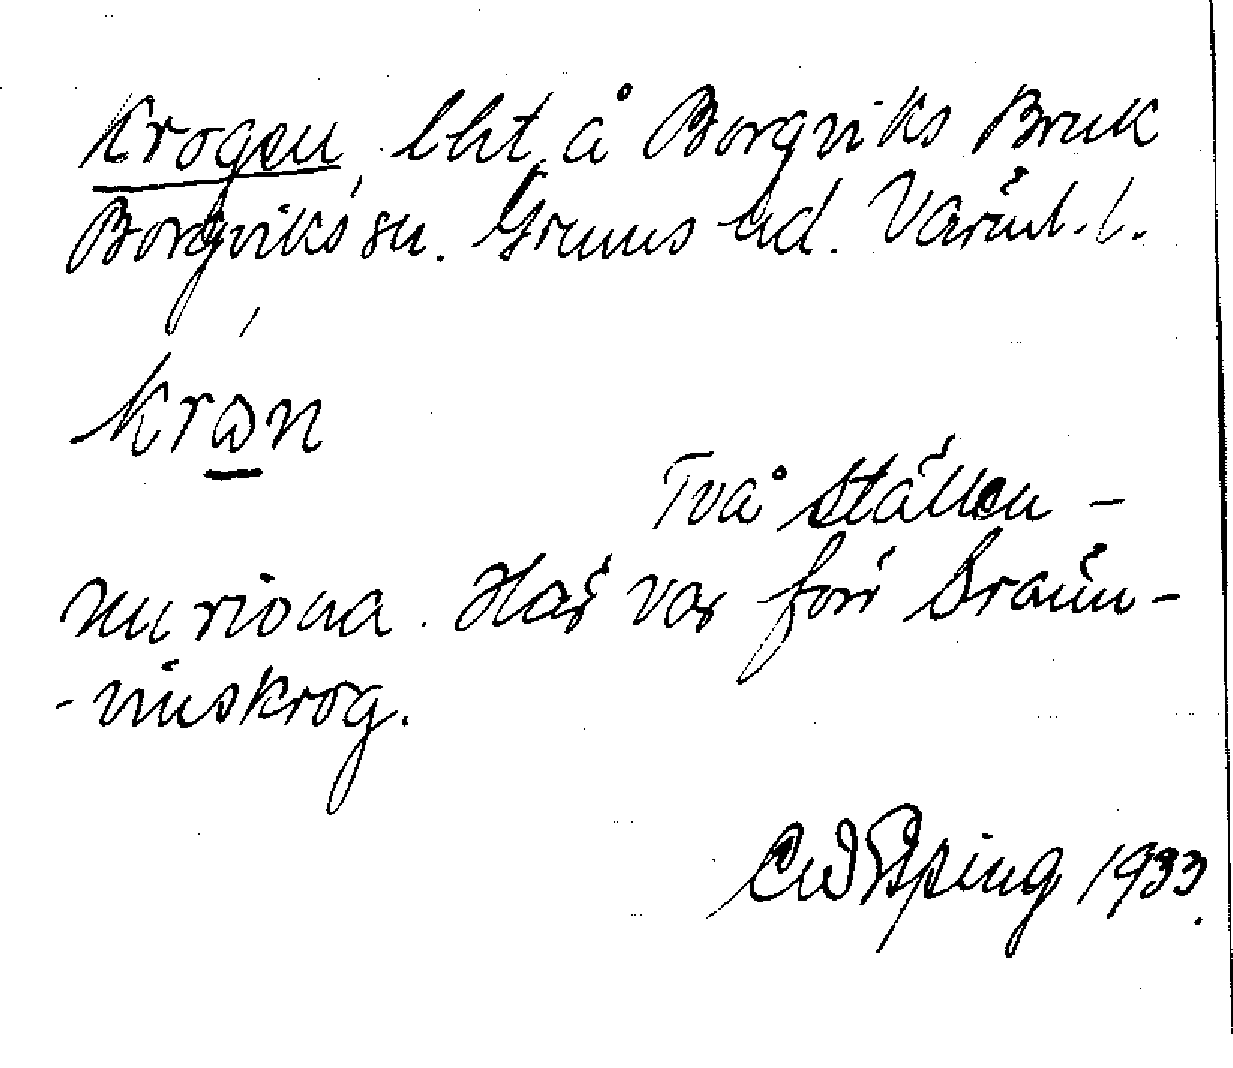 Krogen, lht å Borgviks Bruk
Borgviks sn. Grums hd. Värml. l.
krωn
Två ställen -
nu rivna. Här var förr bränn-
-vinskrog.
Esping 1933.